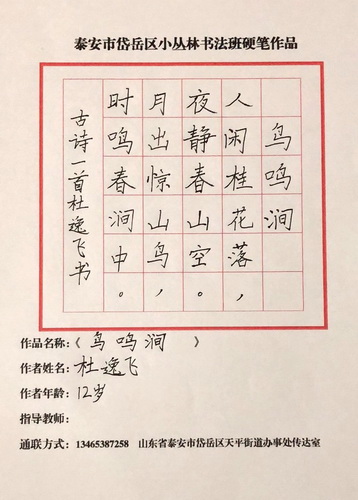 泰安市岱岳区小丛林书法班硬笔作品
鸟鸣涧
人闲桂花落，
夜静春山空。
月出惊山鸟，
时鸣春涧中。
古诗一首杜逸飞书
作品名称：《鸟鸣涧》
作者姓名：杜逸飞
作者年龄：12岁
指导教师：
通联方式：13465387258 山东省泰安市岱岳区天平街道办事处传达室